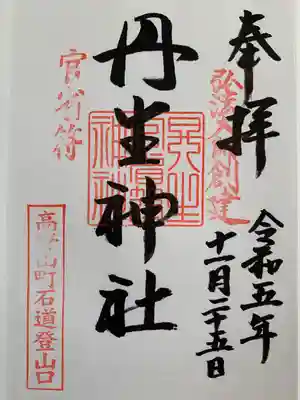 奉拝
弘法大師創建
令和五年
十一月二十五日
丹生神社
官省符
高野山町石道登山口